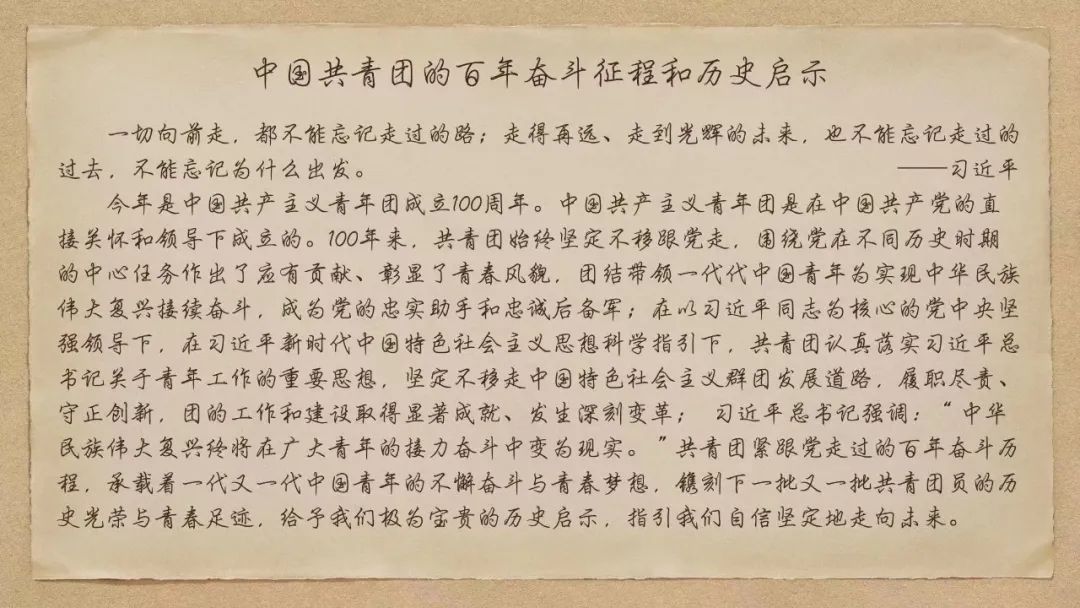 中国共青团的百年奋斗征程和历史启示
一切向前走，都不能忘记走过的路；走得再远、走到光辉的未来，也不能忘记走过的
过去，不能忘记为什么出发。 ——习近平
今年是中国共产主义青年团成立100周年。中国共产主义青年团是在中国共产党的直
接关怀和领导下成立的。100年来，共青团始终坚定不移跟党走，围绕党在不同历史时期
的中心任务作出了应有贡献、彰显了青春风貌，团结带领一代代中国青年为实现中华民族
伟大复兴接续奋斗，成为党的忠实助手和忠诚后备军；在以习近平同志为核心的党中央坚
强领导下，在习近平新时代中国特色社会主义思想科学指引下，共青团认真落实习近平总
书记关于青年工作的重要思想，坚定不移走中国特色社会主义群团发展道路，履职尽责、
守正创新，团的工作和建设取得显著成就、发生深刻变革； 习近平总书记强调：“中华
民族伟大复兴终将在广大青年的接力奋斗中变为现实。”共青团紧跟党走过的百年奋斗历
程，承载着一代又一代中国青年的不懈奋斗与青春梦想，镌刻下一批又一批共青团员的历
史光荣与青春足迹，给予我们极为宝贵的历史启示，指引我们自信坚定地走向未来。